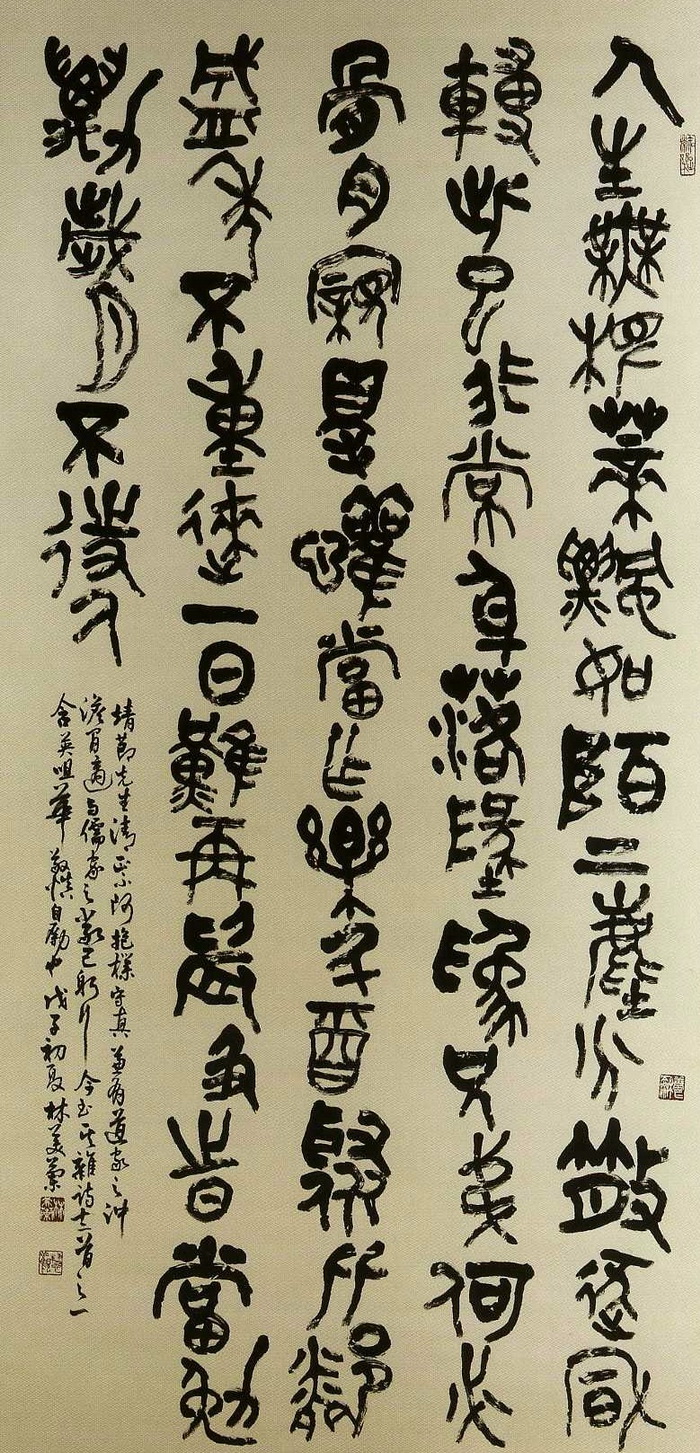 人生無根蒂飄如陌上塵分散逐風
轉此已非常身落墬為兄弟何必
骨肉親得懽當作樂斗酒聚比鄰
盛年不重來一日難再晨及時當勉
勵歲月不待人
靖節先生清正不阿抱樸守真兼有道家之沖
澹閒適与儒家之嚴己躬行今書其雜詩十二首之一
含英咀華敬慎自勵也戊子初夏林美蘭